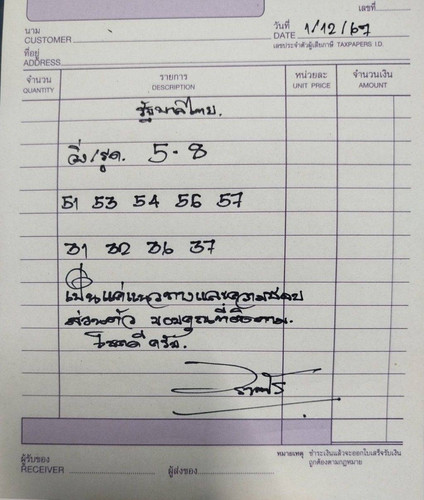 เลขที่
นาม
CUSTOMER
วันที่ 1/12/67
DATE
เลขประจำตัวผู้เสียภาษี TAXPAPERS I.D.
ที่อยู่
ADDRESS
จำนวน รายการ หน่วยละ จำนวนเงิน
QUANTITY DESCRIPTION UNIT PRICE AMOUNT
รัฐบาลไทย.
วิ่ง/รูด. 5-8
51 53 54 56 57
31 32 36 37
เป็นแค่แนวทางและความชอบ
ส่วนตัว ขอบคุณที่ติดตาม.
โชคดี ครับ.
หมายเหตุ ชำระเงินแล้วจะออกใบเสร็จรับเงิน
ถูกต้องตามกฎหมาย
ผู้รับของ
RECEIVER
ผู้ส่งของ